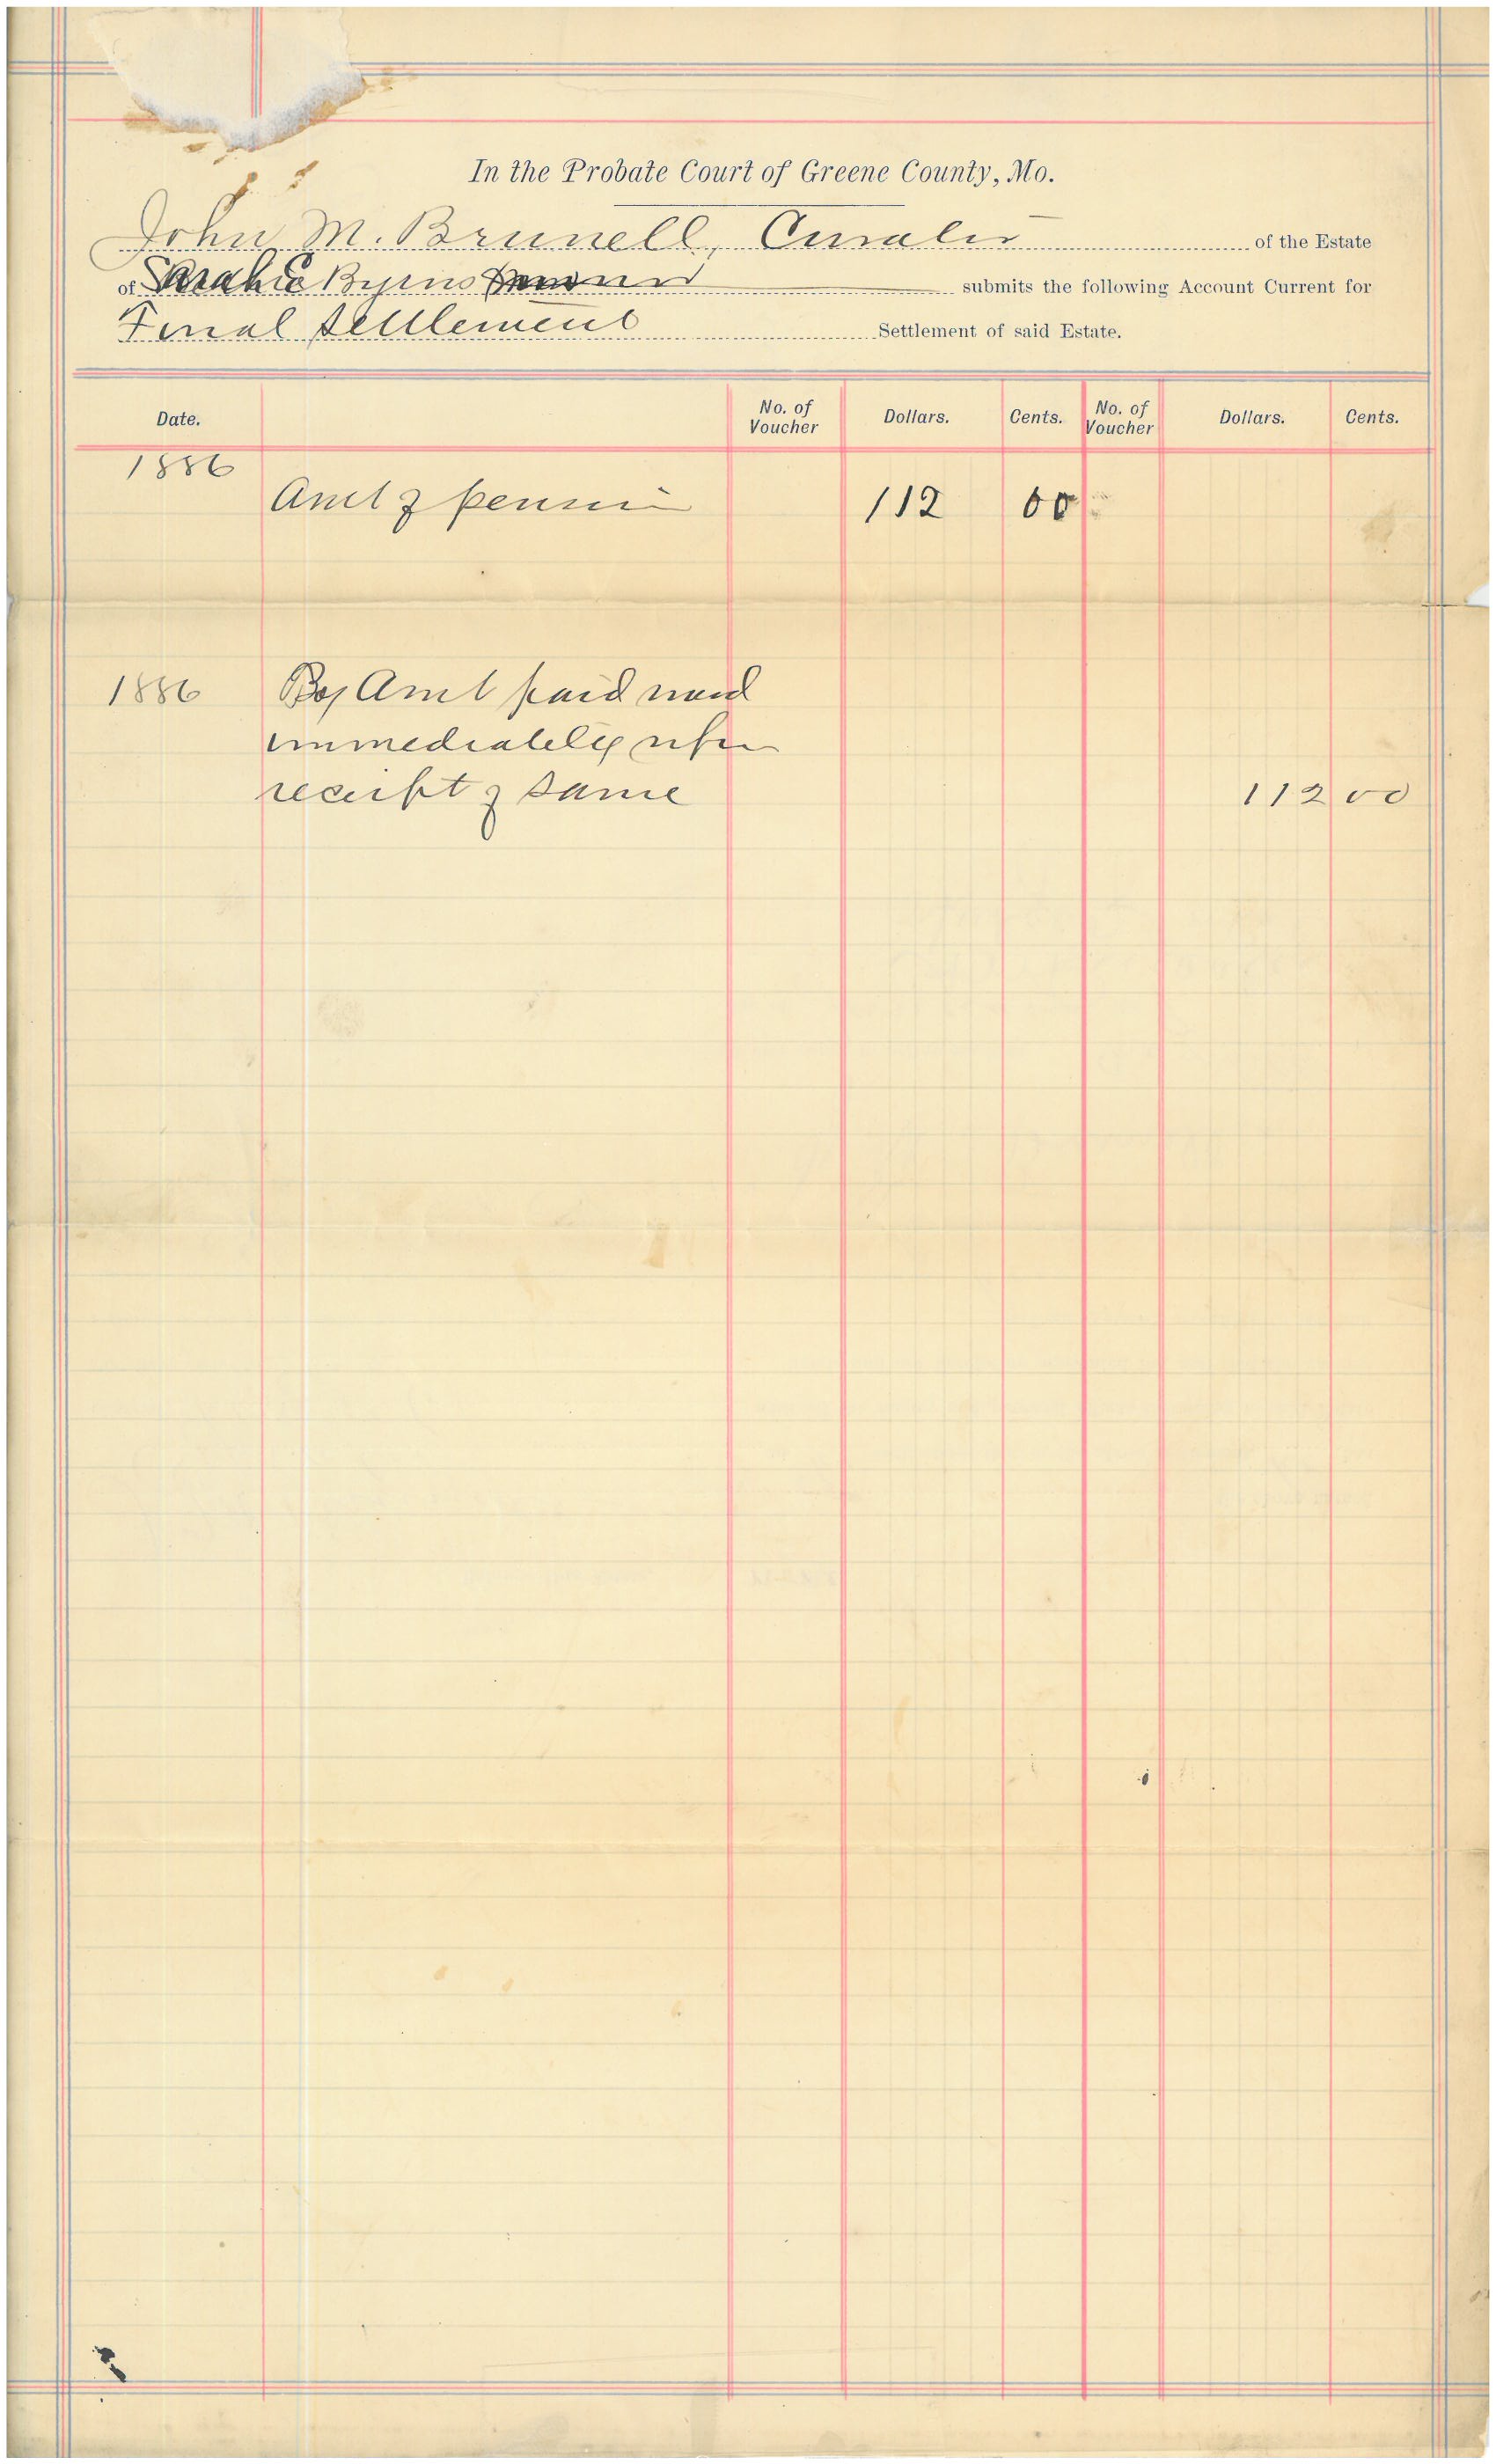 In the Probate Court of Greene County, Mo.
John M. Brunell, Curator of the Estate
of Sarah E Byrns submits the following Account Current for
Final Settlement Settlement of said Estate.
Date. No. of Voucher Dollars. Cents. No. of Voucher Dollars. Cents.
1886
Amt of pension 112 00
1886 By Amt paid ward
immediately upon
receipt of same 112 00